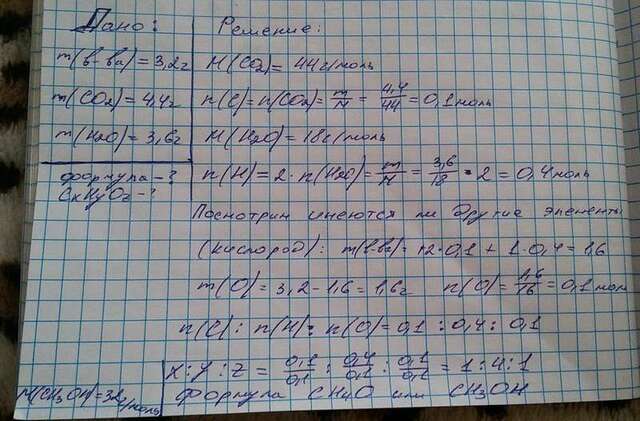 Дано:
m(в-ва) = 3,2г
m(CO2) = 4,4г
m(H2O) = 3,6г
формула - ?
CxHyOz - ?
Решение:
M(CO2) = 44г/моль
n(C) = n(CO2) = m/M = 4,4/44 = 0,1 моль
M(H2O) = 18г/моль
n(H) = 2 · n(H2O) = m/M = 3,6/18 · 2 = 0,4 моль
Посмотрим имеются ли другие элементы
(кислород): m(в-ва) = 12·0,1 + 1·0,4 = 1,6
m(O) = 3,2 - 1,6 = 1,6г n(O) = 1,6/16 = 0,1 мол
n(C) : n(H) : n(O) = 0,1 : 0,4 : 0,1
X : Y : Z = 0,1/0,1 : 0,4/0,1 : 0,1/0,1 = 1 : 4 : 1
формула CH4O или CH3OH
M(CH3OH) = 32г/моль